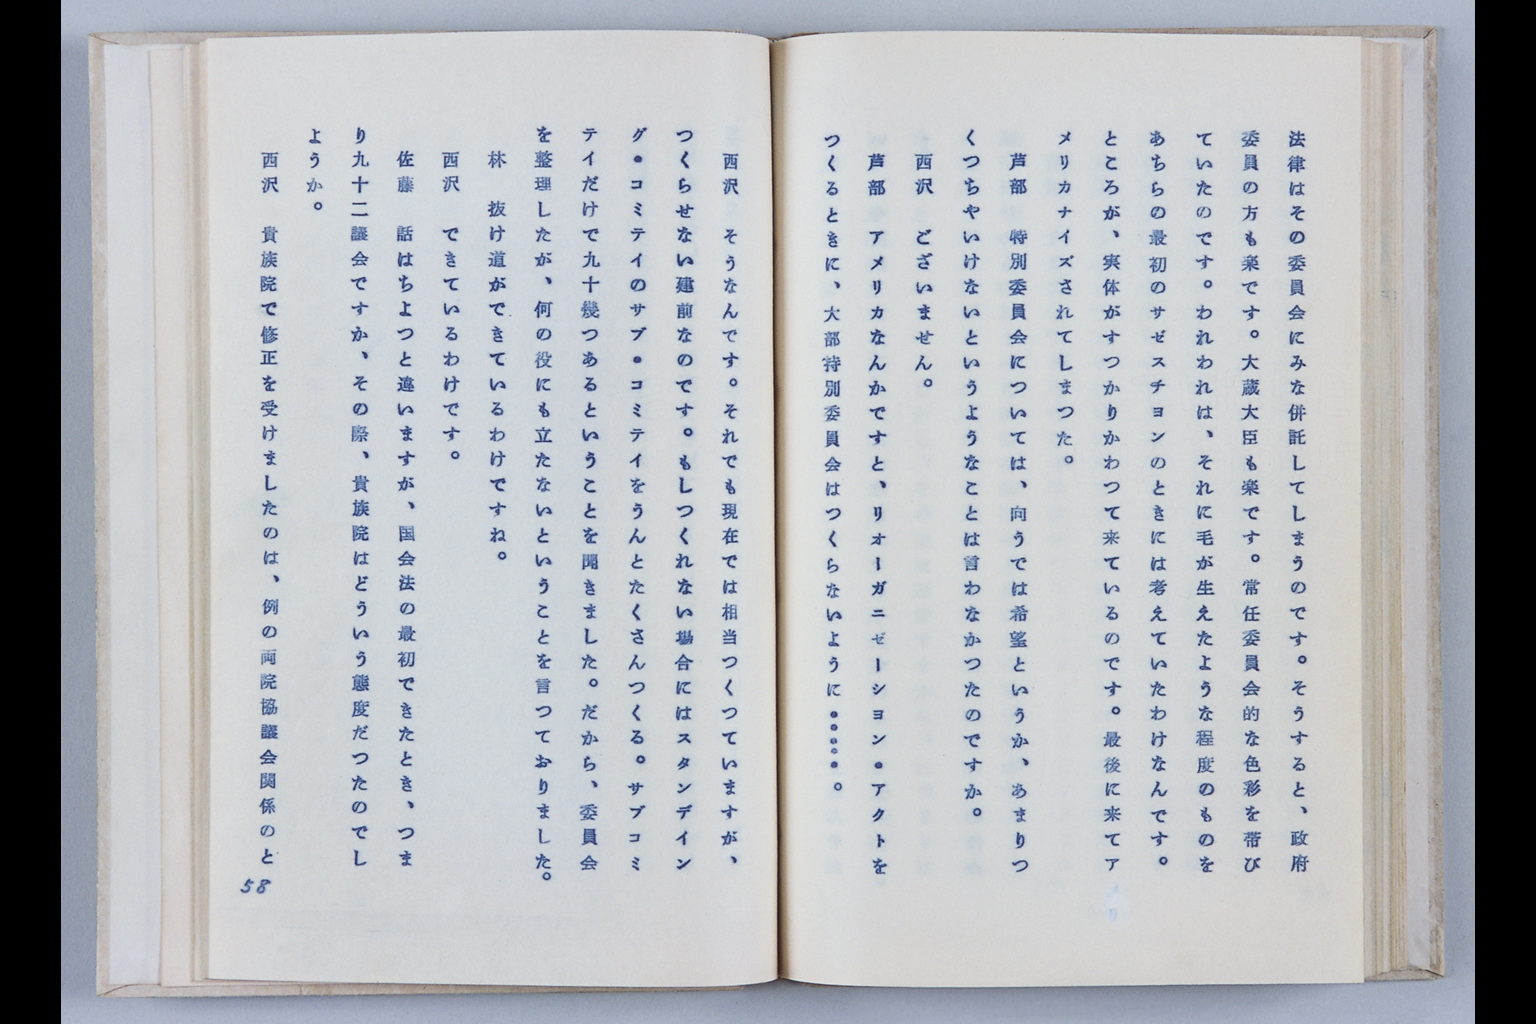 法律はその委員会にみな併託してしまうのです。そうすると、政府
委員の方も楽です。大蔵大臣も楽です。常任委員会的な色彩を帯び
ていたのです。われわれは、それに毛が生えたような程度のものを
あちらの最初のサゼスチヨンのときには考えていたわけなんです。
ところが、実体がすつかりかわつて来ているのです。最後に来てア
メリカナイズされてしまつた。
芦部　特別委員会については、向うでは希望というか、あまりつ
くつちやいけないというようなことは言わなかつたのですか。
西沢　ございません。
芦部　アメリカなんかですと、リオーガニゼーシヨン・アクトを
つくるときに、大部特別委員会はつくらないように・・・・・。
西沢　そうなんです。それでも現在では相当つくつていますが、
つくらせない建前なのです。もしつくれない場合にはスタンデイン
グ・コミテイのサブ・コミテイをうんとたくさんつくる。サブコミ
テイだけで九十幾つあるということを聞きました。だから、委員会
を整理したが、何の役にも立たないということを言つておりました。
林　抜け道ができているわけですね。
西沢　できているわけです。
佐藤　話はちよつと違いますが、国会法の最初できたとき、つま
り九十二議会ですか、その際、貴族院はどういう態度だつたのでし
ようか。
西沢　貴族院で修正を受けましたのは、例の両院協議会関係のと
58